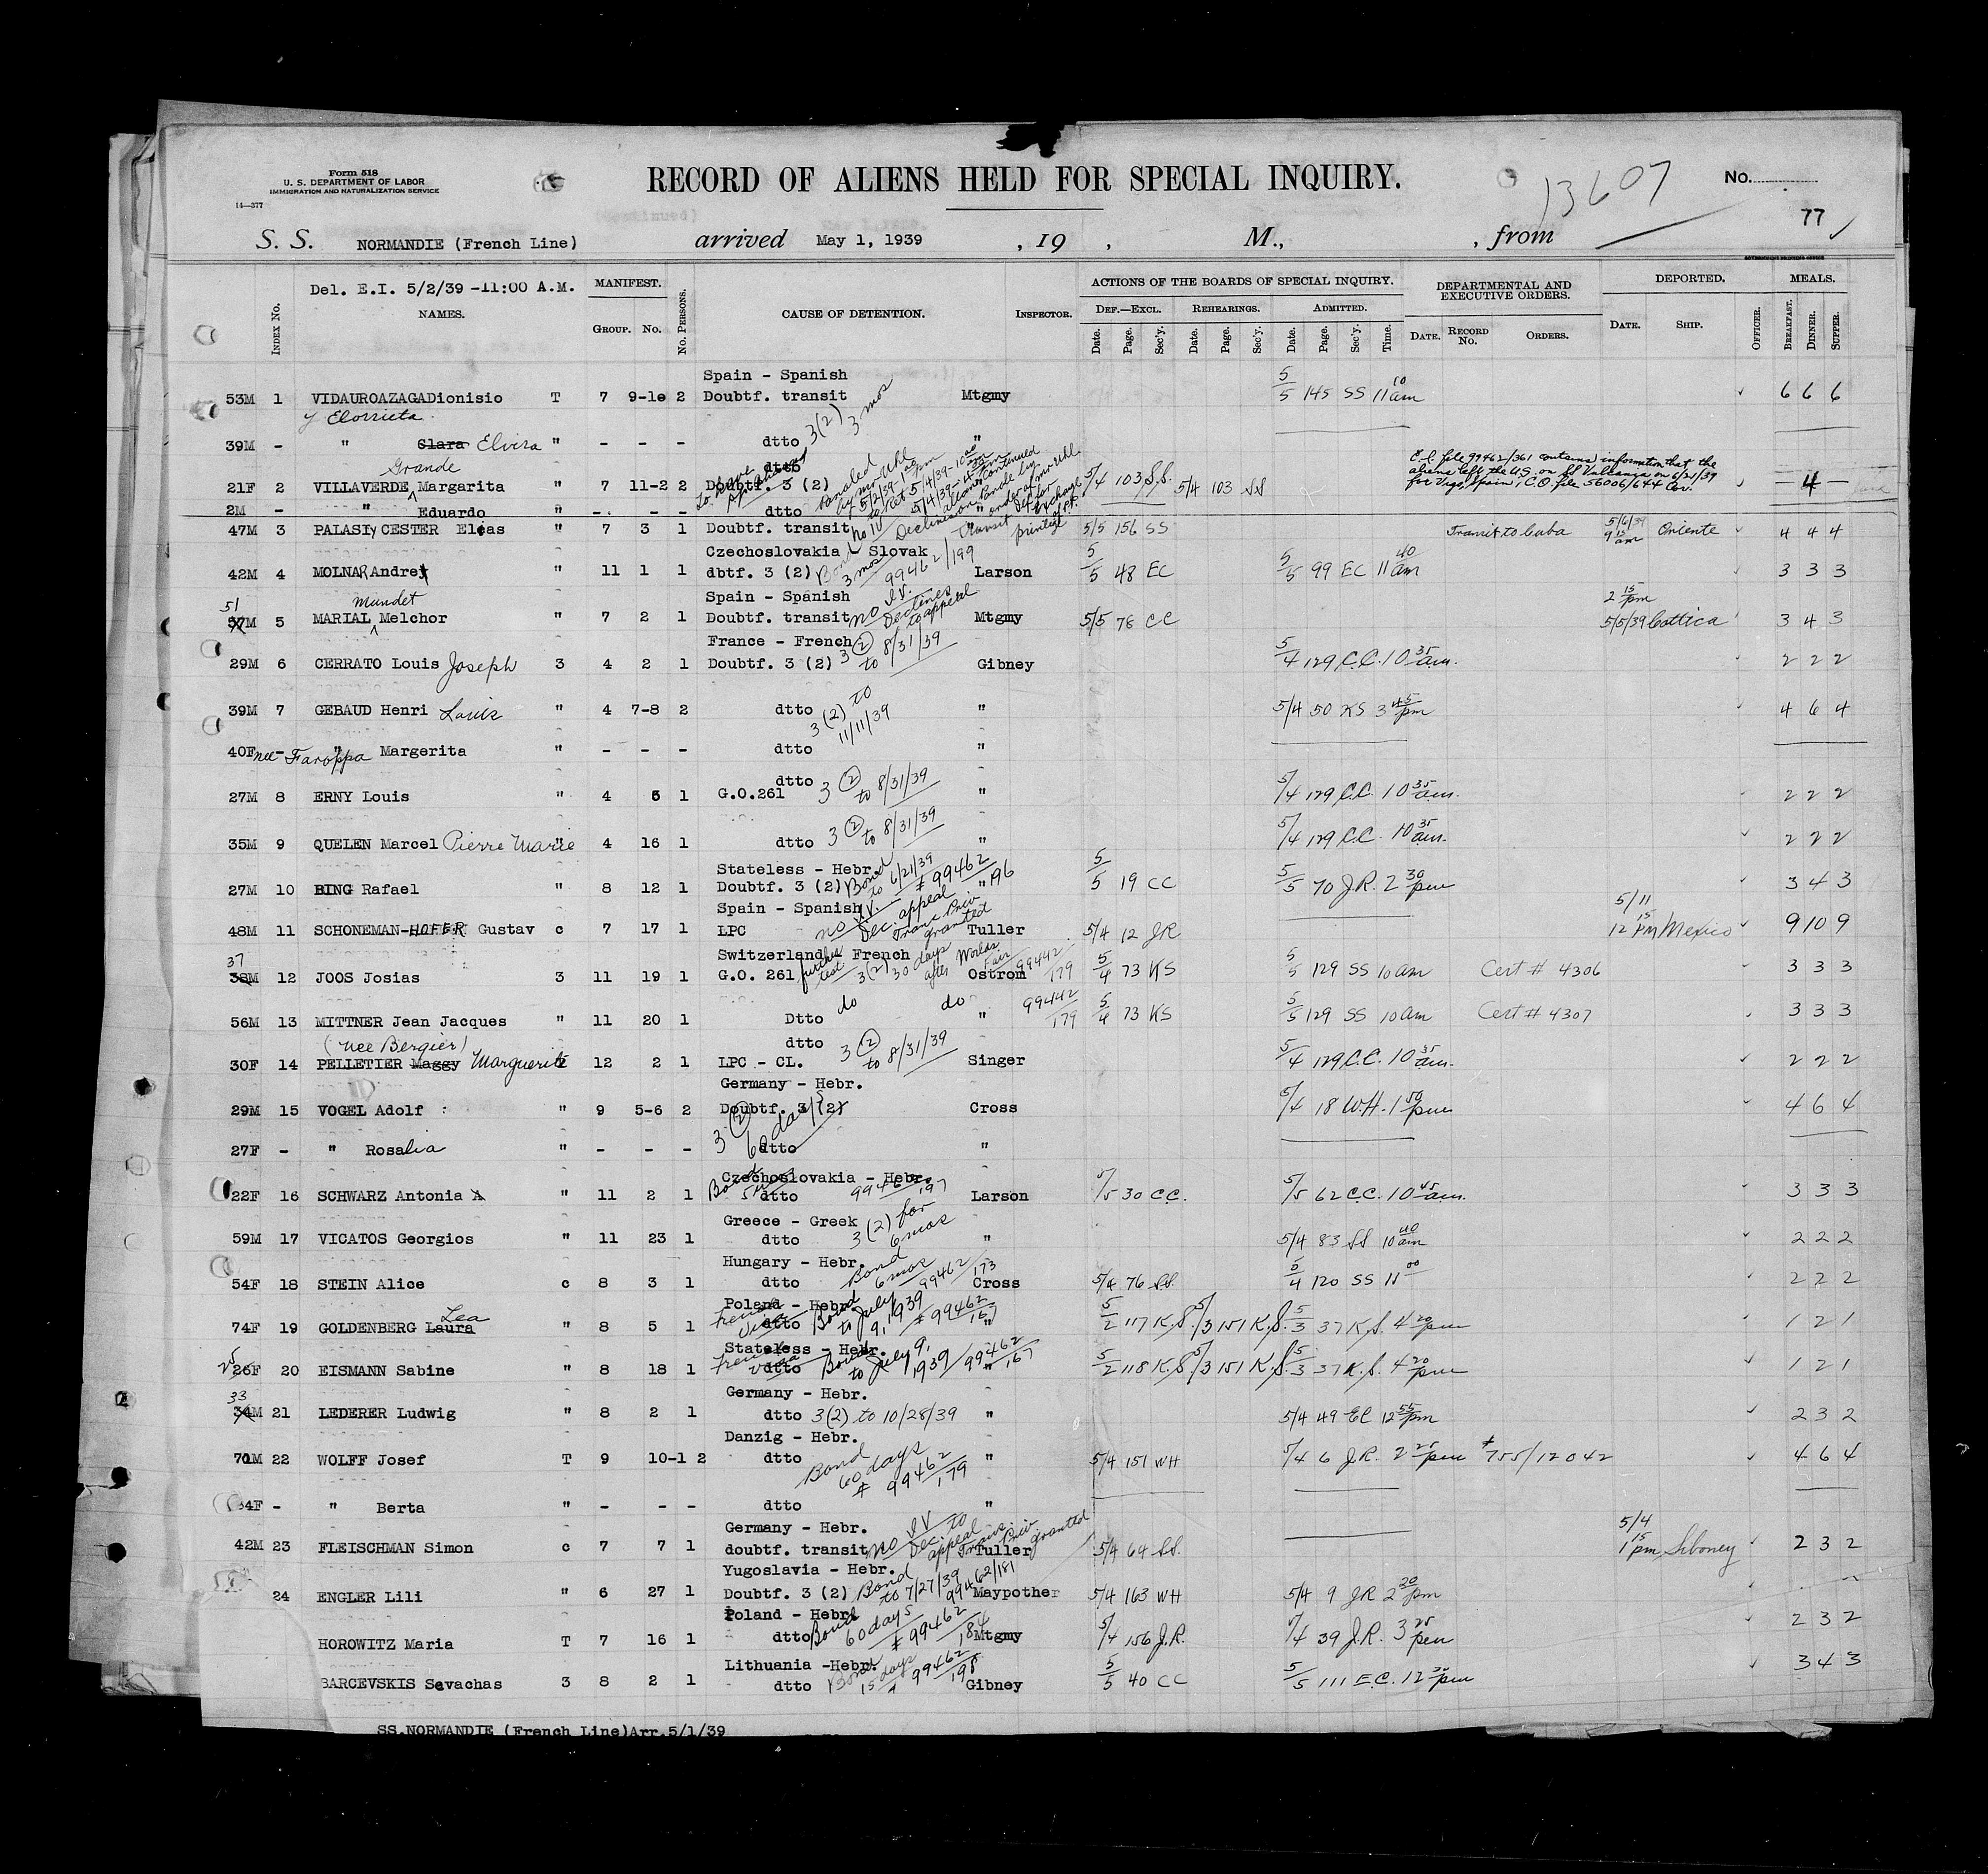 Form 518
U. S. DEPARTMENT OF LABOR
IMMIGRATION AND NATURALIZATION SERVICE
14—377
RECORD OF ALIENS HELD FOR SPECIAL INQUIRY.
13607
No.
77
S. S. NORMANDIE (French Line) arrived May 1, 1939 , 19 , M., , from
Del. E.I. 5/2/39 -11:00 A.M.
MANIFEST. ACTIONS OF THE BOARDS OF SPECIAL INQUIRY. DEPARTMENTAL AND EXECUTIVE ORDERS. DEPORTED. MEALS.
INDEX NO. NAMES. GROUP. NO. NO. PERSONS. CAUSE OF DETENTION. INSPECTOR. DEF.—EXCL. REHEARINGS. ADMITTED. DATE. RECORD NO. ORDERS. DATE. SHIP. OFFICER. BREAKFAST. DINNER. SUPPER.
Date. Page. Sec'y. Date. Page. Sec'y. Date. Page. Sec'y. Time.
Spain - Spanish
53M 1 VIDAUROAZAGADionisio T 7 9-10 2 Doubtf. transit 3(2) 3 mos Mtgmy 5/5 145 SS 11 10 am 6 6 6
y Elorrieta
39M - " Clara Elvira " - - - dtto "
Grande dtto
C.O. file 99462/361 contains information that the
aliens left the U.S. on SS Vulcania on 6/21/39
for Vigo, Spain, C.O. file 56006/644
21F 2 VILLAVERDE Margarita " 7 11-2 2 Doubtf. 3 (2) 5/4 103 S.S. 5/4 103 SS — 4 —
2M - " Eduardo " - - - dtto
47M 3 PALASI y CESTER Elias " 7 3 1 Doubtf. transit 5/5 156 SS Transit to Cuba 5/6/39 9 15 am Oriente 4 4 4
Czechoslovakia - Slovak
42M 4 MOLNAR Andre " 11 1 1 dbtf. 3 (2) Bond 3 mos 99462/199 Larson 5/5 48 EC 5/5 99 EC 11 40 am 3 3 3
Spain - Spanish
51 Mundet 2 15 pm
57M 5 MARIAL Melchor " 7 2 1 Doubtf. transit no I.V. Declines to appeal Mtgmy 5/5 78 CC 5/5/39 Cottica 3 4 3
France - French
29M 6 CERRATO Louis Joseph 3 4 2 1 Doubtf. 3 (2) 3 (2) to 8/31/39 Gibney 5/4 129 C.C. 10 35 am. 2 2 2
39M 7 GEBAUD Henri Louis " 4 7-8 2 dtto 3(2) to 11/11/39 " 5/4 50 KS 3 45 pm 4 6 4
40F - " Margerita " - - - dtto "
nee Faroppa
dtto
27M 8 ERNY Louis " 4 5 1 G.O.261 3 (2) to 8/31/39 " 5/4 129 C.C. 10 35 am. 2 2 2
35M 9 QUELEN Marcel Pierre Marie " 4 16 1 dtto 3 (2) to 8/31/39 " 5/4 129 C.C. 10 35 am. 2 2 2
Stateless - Hebr.
27M 10 BING Rafael " 8 12 1 Doubtf. 3 (2) Bond to 6/21/39 # 99462/196 " 5/5 19 CC 5/5 70 J.R. 2 30 pm 3 4 3
Spain - Spanish
48M 11 SCHONEMAN-HOFER Gustav c 7 17 1 LPC no I.V. Dec. appeal Trans Priv granted Tuller 5/4 12 JR 5/11 12 15 PM Mexico 9 10 9
Switzerland French
37
38M 12 JOOS Josias 3 11 19 1 G.O. 261 further test 3(2) 30 days after Worlds Fair 99442/179 Ostrom 5/4 73 KS 5/5 129 SS 10 am Cert # 4306 3 3 3
56M 13 MITTNER Jean Jacques " 11 20 1 Dtto do do " 99442/179 5/4 73 KS 5/5 129 SS 10 am Cert # 4307 3 3 3
(nee Bergier) dtto
30F 14 PELLETIER Maggy Marguerite 12 2 1 LPC - CL. 3 (2) to 8/31/39 Singer 5/4 129 C.C. 10 35 am. 2 2 2
Germany - Hebr.
29M 15 VOGEL Adolf " 9 5-6 2 Doubtf. 3 (2) 3 (2) 60 days Cross 5/4 18 W.H. 1 50 pm 4 6 4
27F - " Rosalia " - - - dtto "
Czechoslovakia - Hebr.
22F 16 SCHWARZ Antonia " 11 2 1 dtto Bond 99462/197 Larson 5/5 30 C.C. 5/5 62 C.C. 10 45 am. 3 3 3
Greece - Greek
59M 17 VICATOS Georgios " 11 23 1 dtto 3 (2) for 6 mos " 5/4 83 SS 10 40 am 2 2 2
Hungary - Hebr.
54F 18 STEIN Alice c 8 3 1 dtto Bond 6 mos 99462/173 Cross 5/4 76 S.S. 5/4 120 SS 11 00 2 2 2
Poland - Hebr.
Lea
74F 19 GOLDENBERG Laura " 8 5 1 dtto French visa Bond to July 9, 1939 # 99462/167 " 5/2 117 K.S. 5/3 151 K.S. 5/3 37 K.S. 4 20 pm 1 2 1
Stateless - Hebr.
25
26F 20 EISMANN Sabine " 8 18 1 dtto French visa Bond to July 9, 1939 99462/167 " 5/2 118 K.S. 5/3 151 K.S. 5/3 37 K.S. 4 20 pm 1 2 1
Germany - Hebr.
33
34M 21 LEDERER Ludwig " 8 2 1 dtto 3(2) to 10/28/39 " 5/4 49 EC 12 55 pm 2 3 2
Danzig - Hebr.
70M 22 WOLFF Josef T 9 10-1 2 dtto Bond 60 days # 99462/179 " 5/4 151 WH 5/4 6 J.R. 2 25 pm # 755/12042 4 6 4
64F - " Berta " - - - dtto "
Germany - Hebr.
42M 23 FLEISCHMAN Simon c 7 7 1 doubtf. transit no I.V. Dec. to appeal Trans. Priv granted Tuller 5/4 64 S.S. 5/4 1 15 pm Siboney 2 3 2
Yugoslavia - Hebr.
24 ENGLER Lili " 6 27 1 Doubtf. 3 (2) Bond to 7/27/39 99462/181 Maypother 5/4 163 WH 5/4 9 JR 2 30 pm
Poland - Hebr.
HOROWITZ Maria T 7 16 1 dtto Bond 60 days # 99462/184 Mtgmy 5/4 156 J.R. 5/4 39 J.R. 3 25 pm 2 3 2
Lithuania -Hebr.
BARCEVSKIS Savachas 3 8 2 1 dtto Bond 15 days # 99462/198 Gibney 5/5 40 CC 5/5 111 E.C. 12 30 pm 3 4 3
SS.NORMANDIE (French Line)Arr.5/1/39